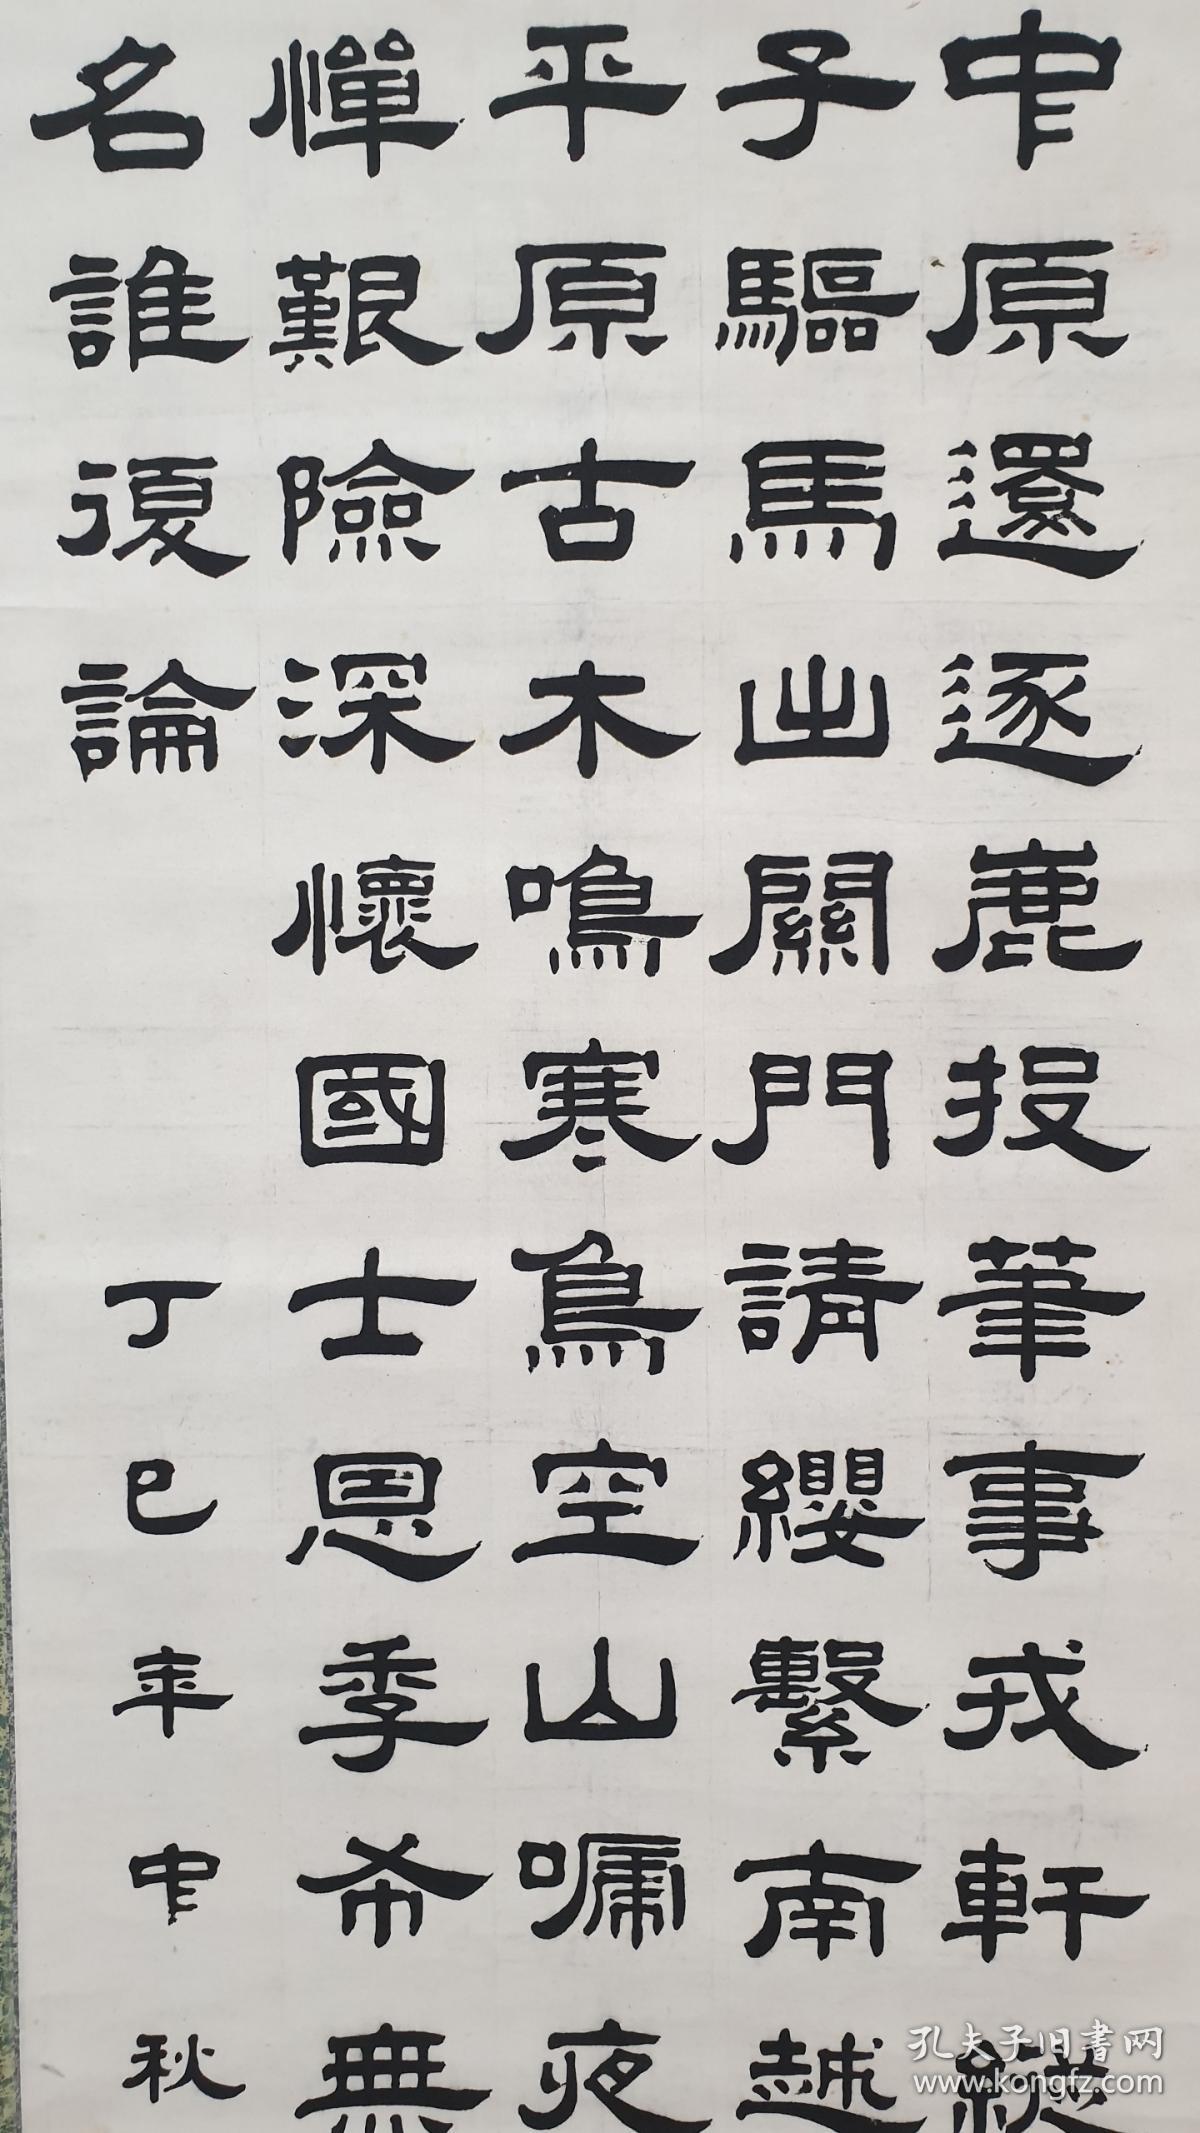 中原還逐鹿投筆事戎軒縱
子驅馬出關門請纓繫南越
平原古木鳴寒鳥空山啼夜
憚艱險深懷國士恩季希無
名誰復論
丁巳年中秋
孔夫子旧書网
www.kongfz.com